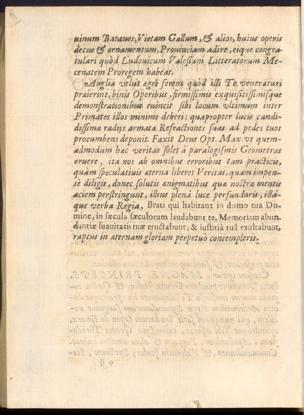 ninum Batauos, Vietam Gallum, & alios, huius operis
decus & ornamentum, Prouinciam adire, eique congra-
tulari quòd Ludouicum Valesium Litteratorum Me-
cenatem Proregem habeat.
Anglia velut ægrè ferens quòd illi Te veneraturi
præierint, binis Operibus, firmissimis exquisitissimisque
demonstrationibus euincit sibi locum vltimum inter
Primates illos minimè deberi; quapropter lucis candi-
dissima radijs armata Refractiones suas ad pedes tuos
procumbens deponit. Faxit Deus Opt. Max. vt quem-
admodum hac veritas solet à paralogismis Geometras
eruere, ita nos ab omnibus erroribus tam practicis,
quàm speculatiuis æterna liberet Veritas, quam impen-
sè diligis, donec solutis ænigmatibus qua nostra mentis
aciem perstringunt, illius plena luce perfundaris, illâ-
que verba Regia, Beati qui habitant in domo tua Do-
mine, in sæcula sæculorum laudabunt te, Memoriam abun-
dantiæ suauitatis tuæ eructabunt; & iustitia tua exultabunt,
raptus in æternam gloriam perpetuò contempleris.